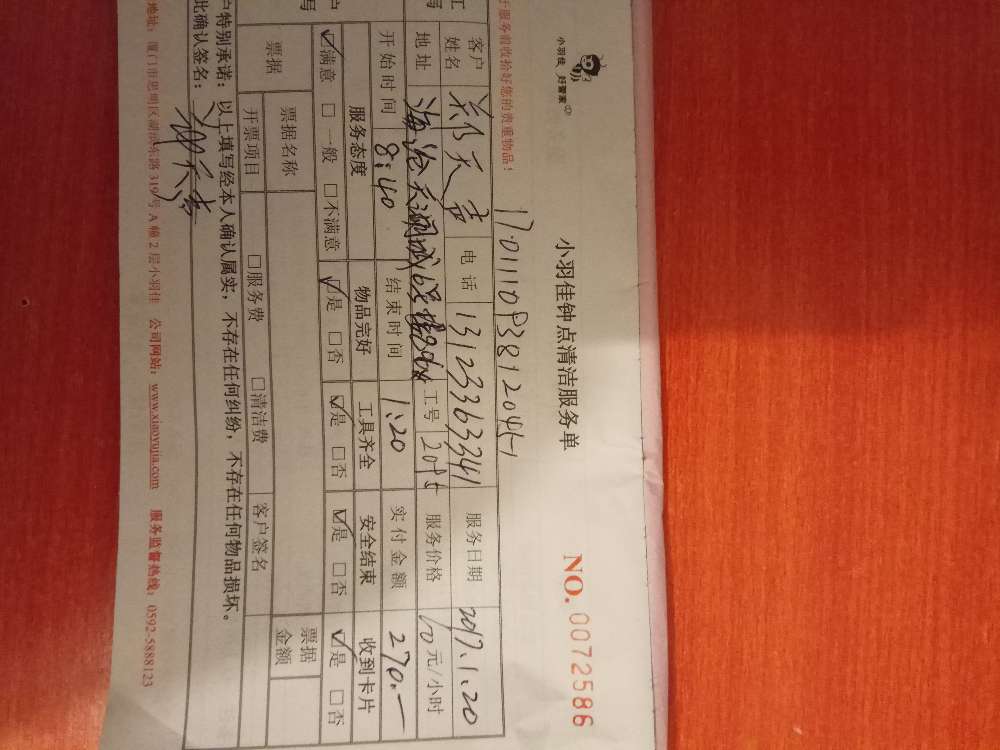 小羽佳 好管家
小羽佳钟点清洁服务单
NO. 0072586
服务前收拾好您的贵重物品！
客户姓名 郑天 电话 13123363341 服务日期 2017.1.20
地址 海沧天湖城 工号 服务价格 元/小时
开始时间 8:40 结束时间 1:20 实付金额 270.一
服务态度 物品完好 工具齐全 安全结束 收到卡片
☑满意 □一般 □不满意 ☑是 □否 ☑是 □否 ☑是 □否 ☑是 □否
票据 票据名称 票据金额
开票项目 □服务费 □清洁费 客户签名
户特别承诺：以上填写经本人确认属实，不存在任何纠纷，不存在任何物品损坏。
此确认签名：
地址：厦门市思明区湖滨东路 319号 A 幢 2 层小羽佳 公司网站：www.xiaoyujia.com 服务监督热线：0592-5888123